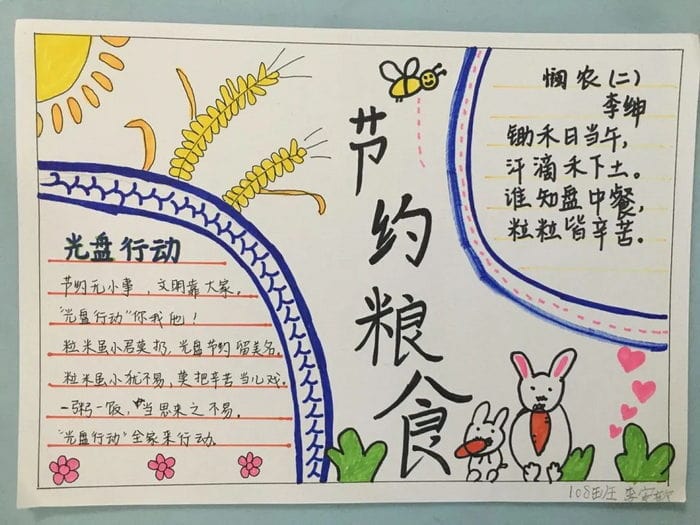 节约粮食
悯农(二)
李绅
锄禾日当午,
汗滴禾下土。
谁知盘中餐,
粒粒皆辛苦。
光盘行动
节约无小事,文明靠大家。
"光盘行动"你我他!
粒米虽小君莫扔,光盘节约留美名。
粒米虽小犹不易,莫把辛苦当儿戏。
一粥一饭,当思来之不易。
"光盘行动"全家来行动.
108班 李